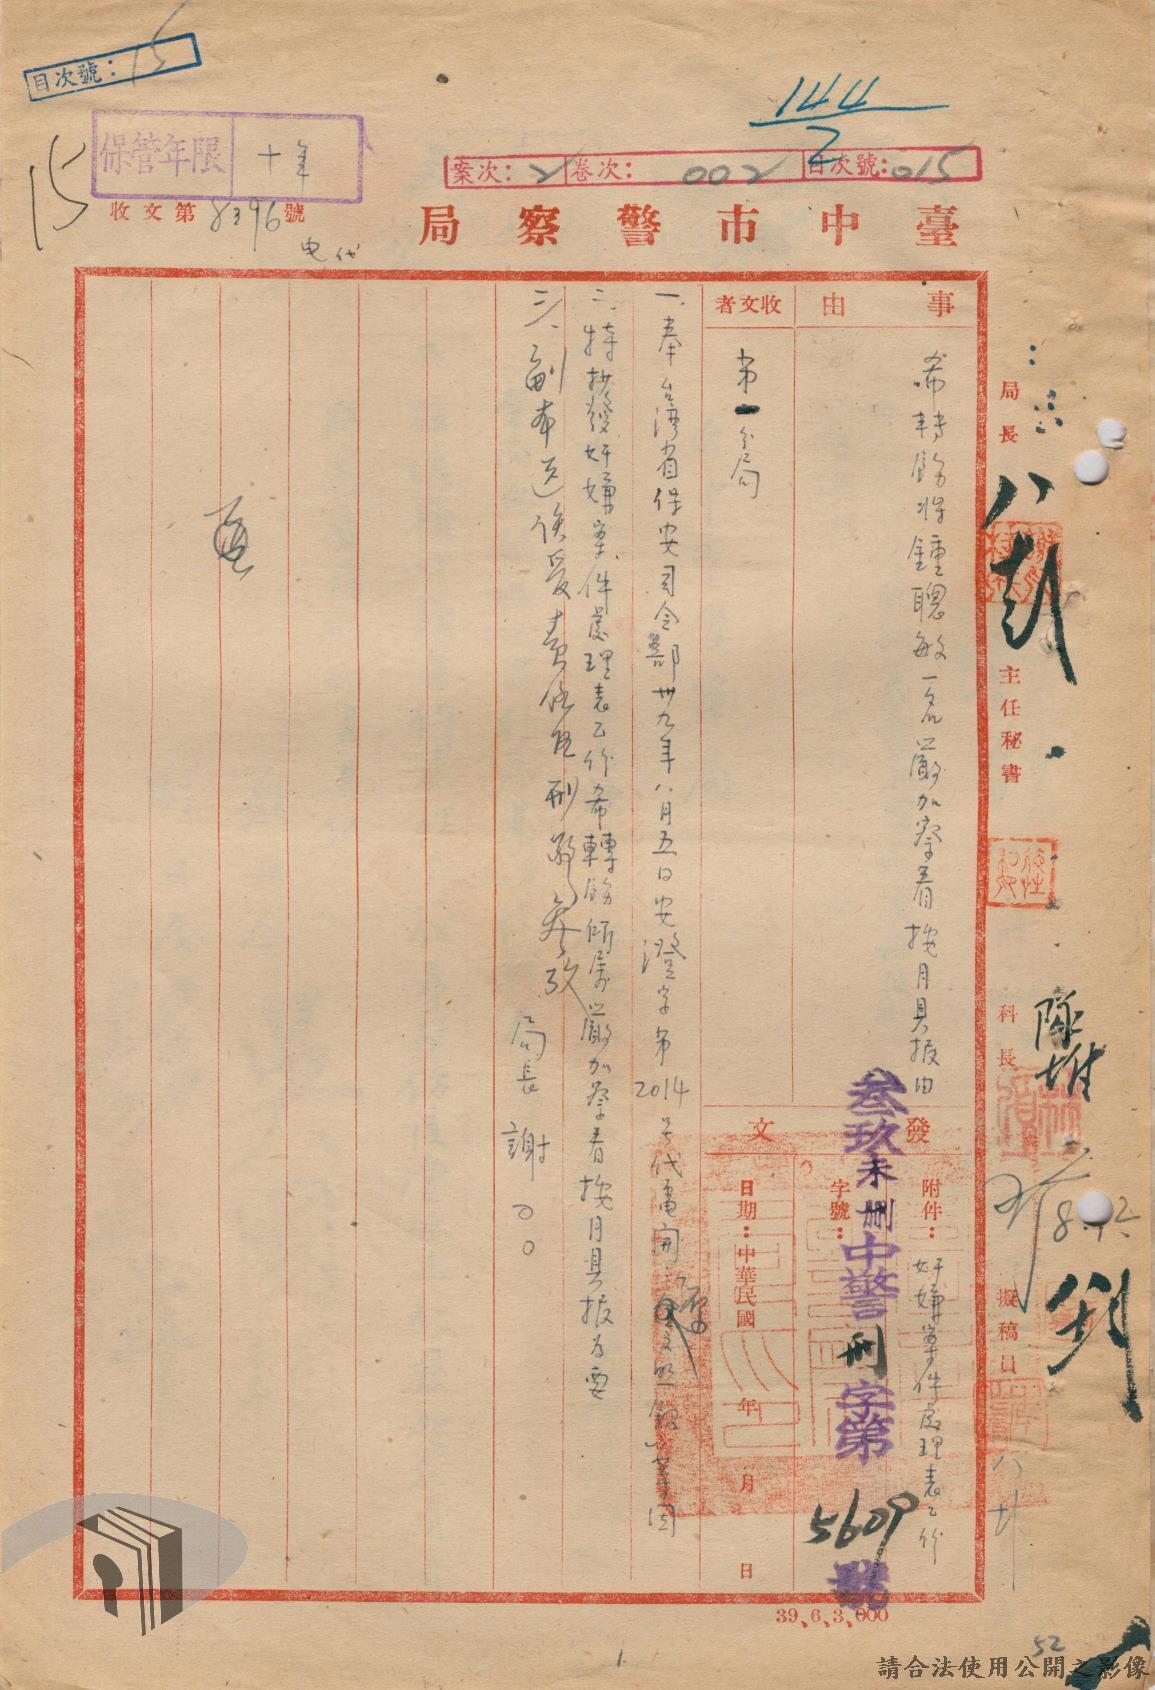 目次號：15
保管年限 十年
15
144/2
案次：2 卷次：002 目次號：015
收文第8396號
电代
臺中市警察局
事由
希轉飭將鍾聰敏一名嚴加察看按月具报由
收文者
第一分局
發文
附件：奸嫌案件處理表乙份
字號：
叁玖未刪中警刑字第5609號
日期：中華民國 年 月 日
一、奉台湾省保安司令部卅九年八月五日安澄字第2014号代電開
二、特抄發奸嫌案件處理表乙份希轉飭所屬嚴加察看按月具报为要
三、副本送
局長 謝〇〇
局長
主任秘書
科長
擬稿員
8.12
39,6,3,000
1
52
請合法使用公開之影像